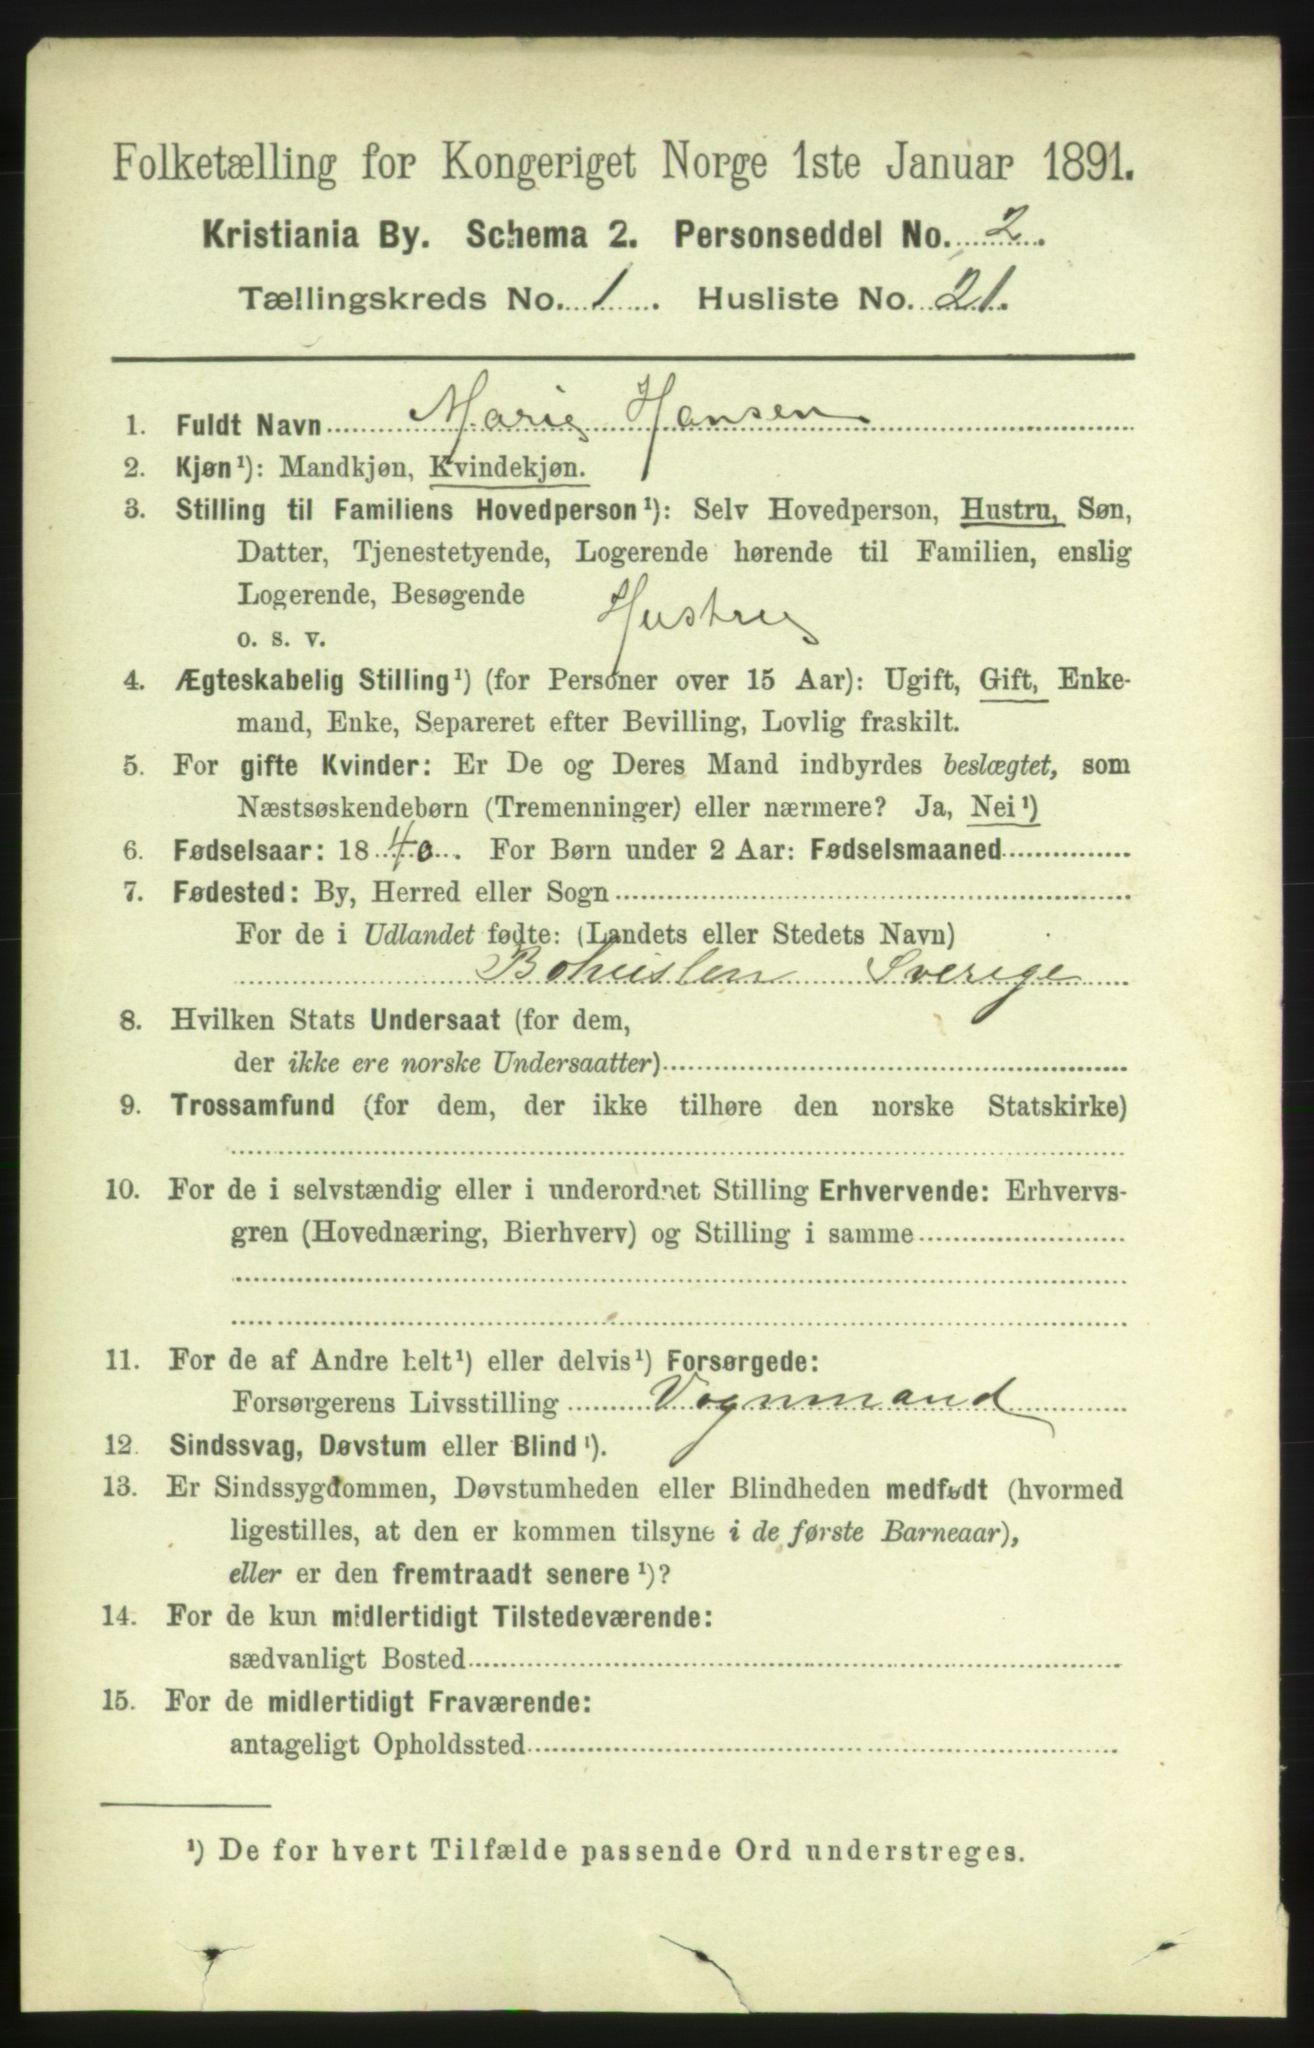 Folketælling for Kongeriget Norge 1ste Januar 1891.
Kristiania By. Schema 2. Personseddel No. 2.
Tællingskreds No. 1. Husliste No. 21.
1. Fuldt Navn Marie Hansen
2. Kjøn¹): Mandkjøn, Kvindekjøn.
3. Stilling til Familiens Hovedperson¹): Selv Hovedperson, Hustru, Søn,
Datter, Tjenestetyende, Logerende hørende til Familien, enslig
Logerende, Besøgende
o. s. v. Hustru
4. Ægteskabelig Stilling¹) (for Personer over 15 Aar): Ugift, Gift, Enke-
mand, Enke, Separeret efter Bevilling, Lovlig fraskilt.
5. For gifte Kvinder: Er De og Deres Mand indbyrdes beslægtet, som
Næstsøskendebørn (Tremenninger) eller nærmere? Ja, Nei¹)
6. Fødselsaar: 1840. For Børn under 2 Aar: Fødselsmaaned
7. Fødested: By, Herred eller Sogn
For de i Udlandet fødte: (Landets eller Stedets Navn)
Bohuslen Sverige
8. Hvilken Stats Undersaat (for dem,
der ikke ere norske Undersaatter)
9. Trossamfund (for dem, der ikke tilhøre den norske Statskirke)
10. For de i selvstændig eller i underordnet Stilling Erhvervende: Erhvervs-
gren (Hovednæring, Bierhverv) og Stilling i samme
11. For de af Andre helt¹) eller delvis¹) Forsørgede:
Forsørgerens Livsstilling Vognmand
12. Sindssvag, Døvstum eller Blind¹).
13. Er Sindssygdommen, Døvstumheden eller Blindheden medfødt (hvormed
ligestilles, at den er kommen tilsyne i de første Barneaar),
eller er den fremtraadt senere¹)?
14. For de kun midlertidigt Tilstedeværende:
sædvanligt Bosted
15. For de midlertidigt Fraværende:
antageligt Opholdssted
¹) De for hvert Tilfælde passende Ord understreges.